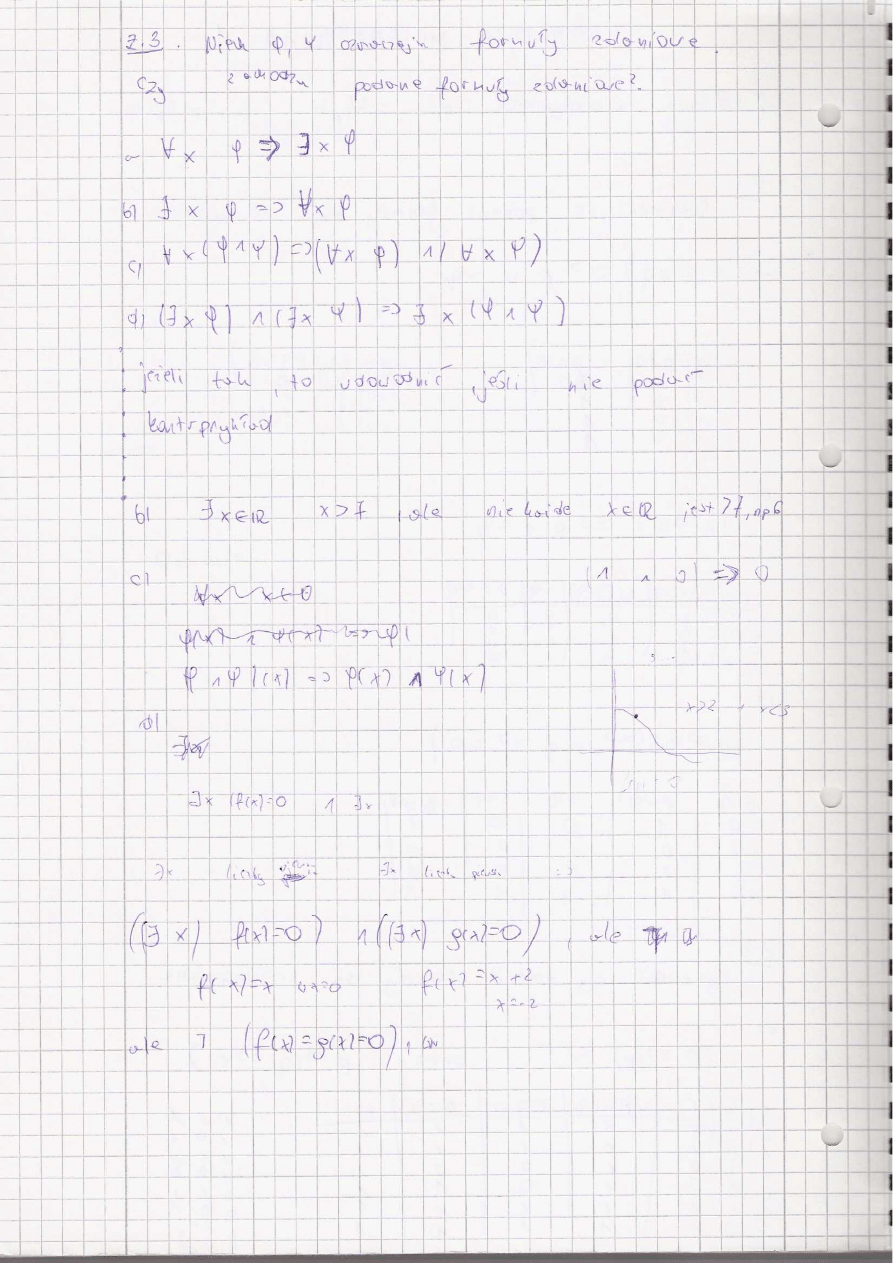 Z.3. Niech φ, ψ oznaczają formuły zdaniowe.
Czy zachodzą podane formuły zdaniowe?
a ∀x φ => ∃x φ
b) ∃x φ => ∀x φ
c) ∀x(φ∧ψ) => (∀x φ) ∧ (∀x ψ)
d) (∃x φ) ∧ (∃x ψ) => ∃x (φ∧ψ)
jeżeli tak, to udowodnić, jeśli nie podać
kontrprzykład
b) ∃x∈ℝ x>7, ale nie każde x∈ℝ jest >7, np 6
c) (1 ∧ 0) => 0
φ∧ψ)(x) => φ(x) ∧ ψ(x)
x>2 x<3
d)
∃x f(x)=0 ∧ ∃x
∃x liczby ∃x =>
((∃x) f(x)=0) ∧ ((∃x) g(x)=0), ale
f(x)=x x=0 f(x)=x+2
x=-2
ale (f(x)=g(x)=0),